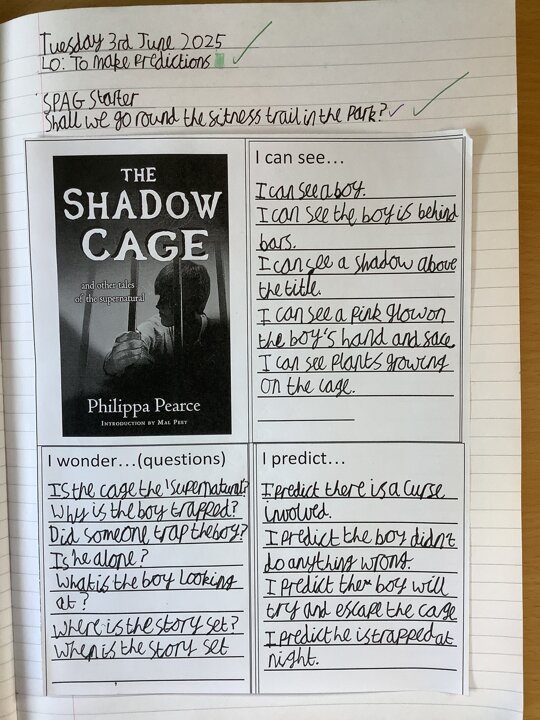 Tuesday 3rd June 2025
LO: To make predictions
SPAG Starter
Shall we go round the sitness trail in the park?
THE
SHADOW
CAGE
and other tales
of the supernatural
Philippa Pearce
INTRODUCTION BY MAL PEET
I can see...
I can see a boy.
I can see the boy is behind
bars.
I can see a shadow above
the title.
I can see a pink glow on
the boy's hand and sace
I can see plants growing
on the cage.
I wonder...(questions)
Is the cage the 'supernatural'?
Why is the boy trapped?
Did someone trap the boy?
Is he alone?
What is the boy looking
at?
Where is the story set?
When is the story set
I predict...
I predict there is a curse
involved.
I predict the boy didn't
do anything wrong.
I predict the boy will
try and escape the cage
I predict he is trapped at
night.